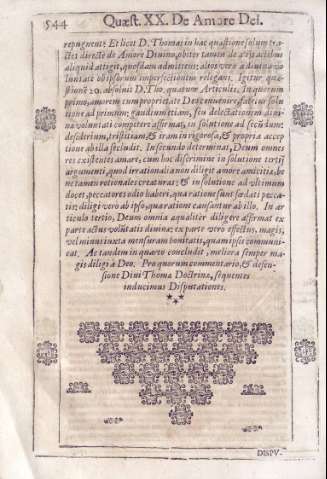 544 Quæst. XX. De Amore Dei.
repugnent: Et licet D. Thomas in hac quæstione solum tra-
ctet directè de Amore Divino, obiter tamen de actibus
aliquid attigit, quosdam admittens; alios verò à divina vo-
luntate ob ipsorum imperfectionem relegans. Igitur quæ-
stionem 20. absolvit D. Tho. quatuor Articulis. In quorum
primo, amorem cum proprietate Deo convenire, fatetur solu-
tione ad primum; gaudium etiam, seu delectationem divi-
næ voluntati competere affirmat; in solutione ad secundum;
desiderium, tristitiam, & iram in rigorosa, & propria accep-
tione ab illa secludit. In secundo determinat, Deum omnes
res existentes amare, cum hoc discrimine in solutione tertij
argumenti, quod irrationalia non diligit amore amicitiæ, be-
ne tamen rationales creaturas; & in solutione ad ultimum
docet, peccatores odio haberi, qua ratione sunt fœdati pecca-
tis; diligi verò ab ipso, qua ratione causantur ab illo. In ar-
ticulo tertio, Deum omnia æqualiter diligere affirmat ex
parte actus volūtatis divinæ; ex parte verò effectus, magis,
vel minùs iuxta mensuram bonitatis, quam ipsis communi-
cat. Ac tandem in quarto concludit, meliora semper ma-
gis diligi à Deo. Pro quorum commentario, & defen-
sione Divi Thomæ Doctrinæ, sequentes
inducimus Disputationes.
DISPV-